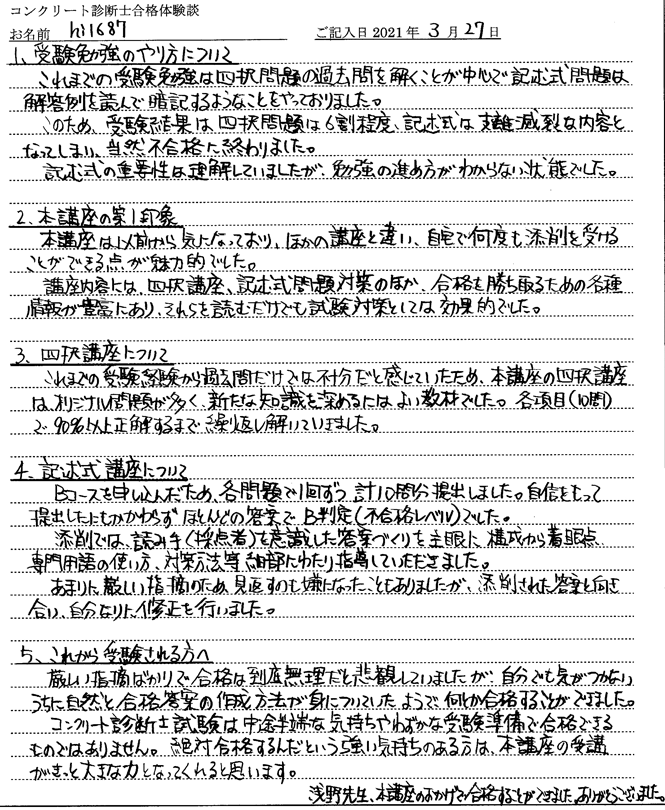 コンクリート診断士合格体験談
お名前 hi1687 ご記入日 2021年 3月 27日
1、受験勉強のやり方について
これまでの受験勉強は四択問題の過去問を解くことが中心で記述式問題は
解答例を読んで暗記するようなことをやっておりました。
このため、受験結果は四択問題は6割程度、記述式は支離滅裂な内容と
なってしまい、当然不合格に終わりました。
記述式の重要性は理解していましたが、勉強の進め方がわからない状態でした。
2、本講座の第1印象
本講座は1人前から気になっており、ほかの講座と違い、自宅で何度も添削を受ける
ことができる点が魅力的でした。
講座内容には、四択講座、記述式問題対策のほか、合格を勝ち取るための各種
情報が豊富にあり、それらを読むだけでも試験対策としては効果的でした。
3、四択講座について
これまでの受験経験から過去問だけでは不十分だと感じていたため、本講座の四択講座
は、オリジナル問題が多く、新たな知識を深めるにはよい教材でした。各項目(10問)
で90%以上正解するまで繰り返し解いていきました。
4、記述式講座について
Bコースを申し込んだため、各問題で1回ずつ計10問分提出しました。自信をもって
提出したにもかかわらずほとんどの答案でB判定(不合格レベル)でした。
添削では、読み手(採点者)を意識した答案づくりを主眼に、構成から着眼点
専門用語の使い方、対策方法等細部にわたり指導していただきました。
あまりに厳しい指摘のため、見返すのも嫌になったこともありましたが、添削された答案と向き
合い、自分なりに修正を行いました。
5、これから受験される方へ
厳しい指摘ばかりで合格は到底無理だと悲観していましたが、自分でも気がつかない
うちに自然と合格答案の作成方法が身についていたようで、何とか合格することができました。
コンクリート診断士試験は中途半端な気持ちやわずかな受験準備で合格できる
ものではありません。絶対合格するんだという強い気持ちのある方は、本講座の受講
がきっと大きな力となってくれると思います。
浅野先生、本講座のおかげで合格することができました。ありがとうございました。